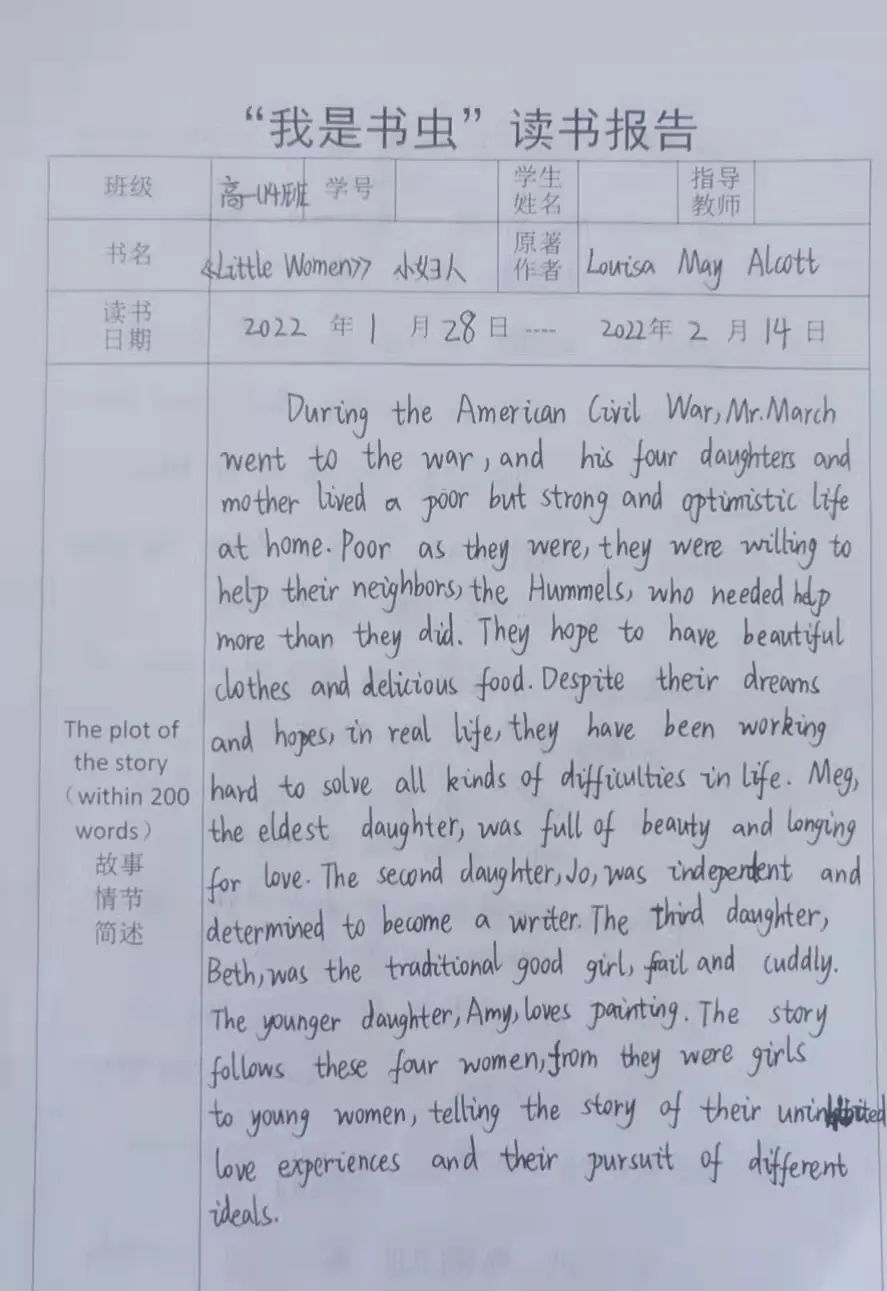 “我是书虫”读书报告
班级 高一(4)班 学号 学生姓名 指导教师
书名 《Little Women》 小妇人 原著作者 Louisa May Alcott
读书日期 2022 年 1 月 28 日 ---- 2022年 2 月 14 日
The plot of
the story
（within 200
words）
故事
情节
简述
During the American Civil War, Mr. March
went to the war, and his four daughters and
mother lived a poor but strong and optimistic life
at home. Poor as they were, they were willing to
help their neighbors, the Hummels, who needed help
more than they did. They hope to have beautiful
clothes and delicious food. Despite their dreams
and hopes, in real life, they have been working
hard to solve all kinds of difficulties in life. Meg,
the eldest daughter, was full of beauty and longing
for love. The second daughter, Jo, was independent and
determined to become a writer. The third daughter,
Beth, was the traditional good girl, frail and cuddly.
The younger daughter, Amy, loves painting. The story
follows these four women, from they were girls
to young women, telling the story of their
love experiences and their pursuit of different
ideals.